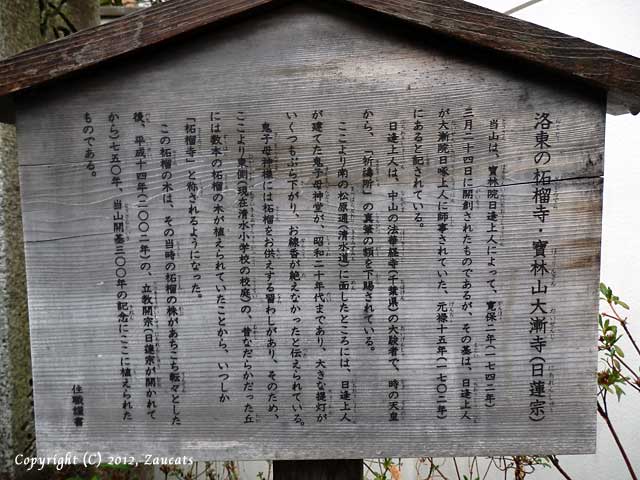 洛東の柘榴寺・寶林山大漸寺（日蓮宗）
当山は、寶林院日逢上人によって、寛保二年（一七四二年）
三月二十四日に開創されたものであるが、その基は、日逢上人
が大漸院日啄上人に師事されていた、元禄十五年（一七〇二年）
にあると記されている。
日逢上人は、中山の法華経寺（千葉県）の大験者で、時の天皇
から、「祈禱所」の真筆の額を下賜されている。
ここより南の松原通（清水道）に面したところには、日逢上人
が建てた鬼子母神堂が、昭和二十年代まであり、大きな提灯が
いくつもぶら下がり、お線香が絶えなかったと伝えられている。
鬼子母神様には柘榴をお供えする習わしがあり、そのため、
ここより東側（現在清水小学校の校庭）の、昔なだらかだった丘
には数本の柘榴の木が植えられていたことから、いつしか
「柘榴寺」と称されるようになった。
この柘榴の木は、その当時の柘榴の株があちこち転々とした
後、平成十四年（二〇〇二年）の、立教開宗（日蓮宗が開かれて
から）七五〇年、当山開基三〇〇年の記念にここに植えられた
ものである。
住職謹書
Copyright (C) 2012, Zaucats